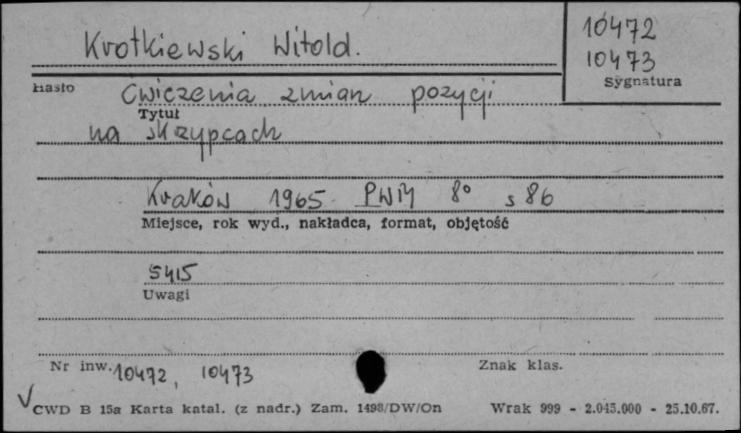 Krotkiewski Witold.
10472
10473
Sygnatura
Hasło
Cwiczenia zmian pozycji
Tytuł
na skrzypcach
Kraków 1965 PWM 8° s 86
Miejsce, rok wyd., nakładca, format, objętość
5415
Uwagi
Nr inw. 10472, 10473
Znak klas.
CWD B 15a Karta katal. (z nadr.) Zam. 1498/DW/On Wrak 999 - 2.045.000 - 25.10.67.